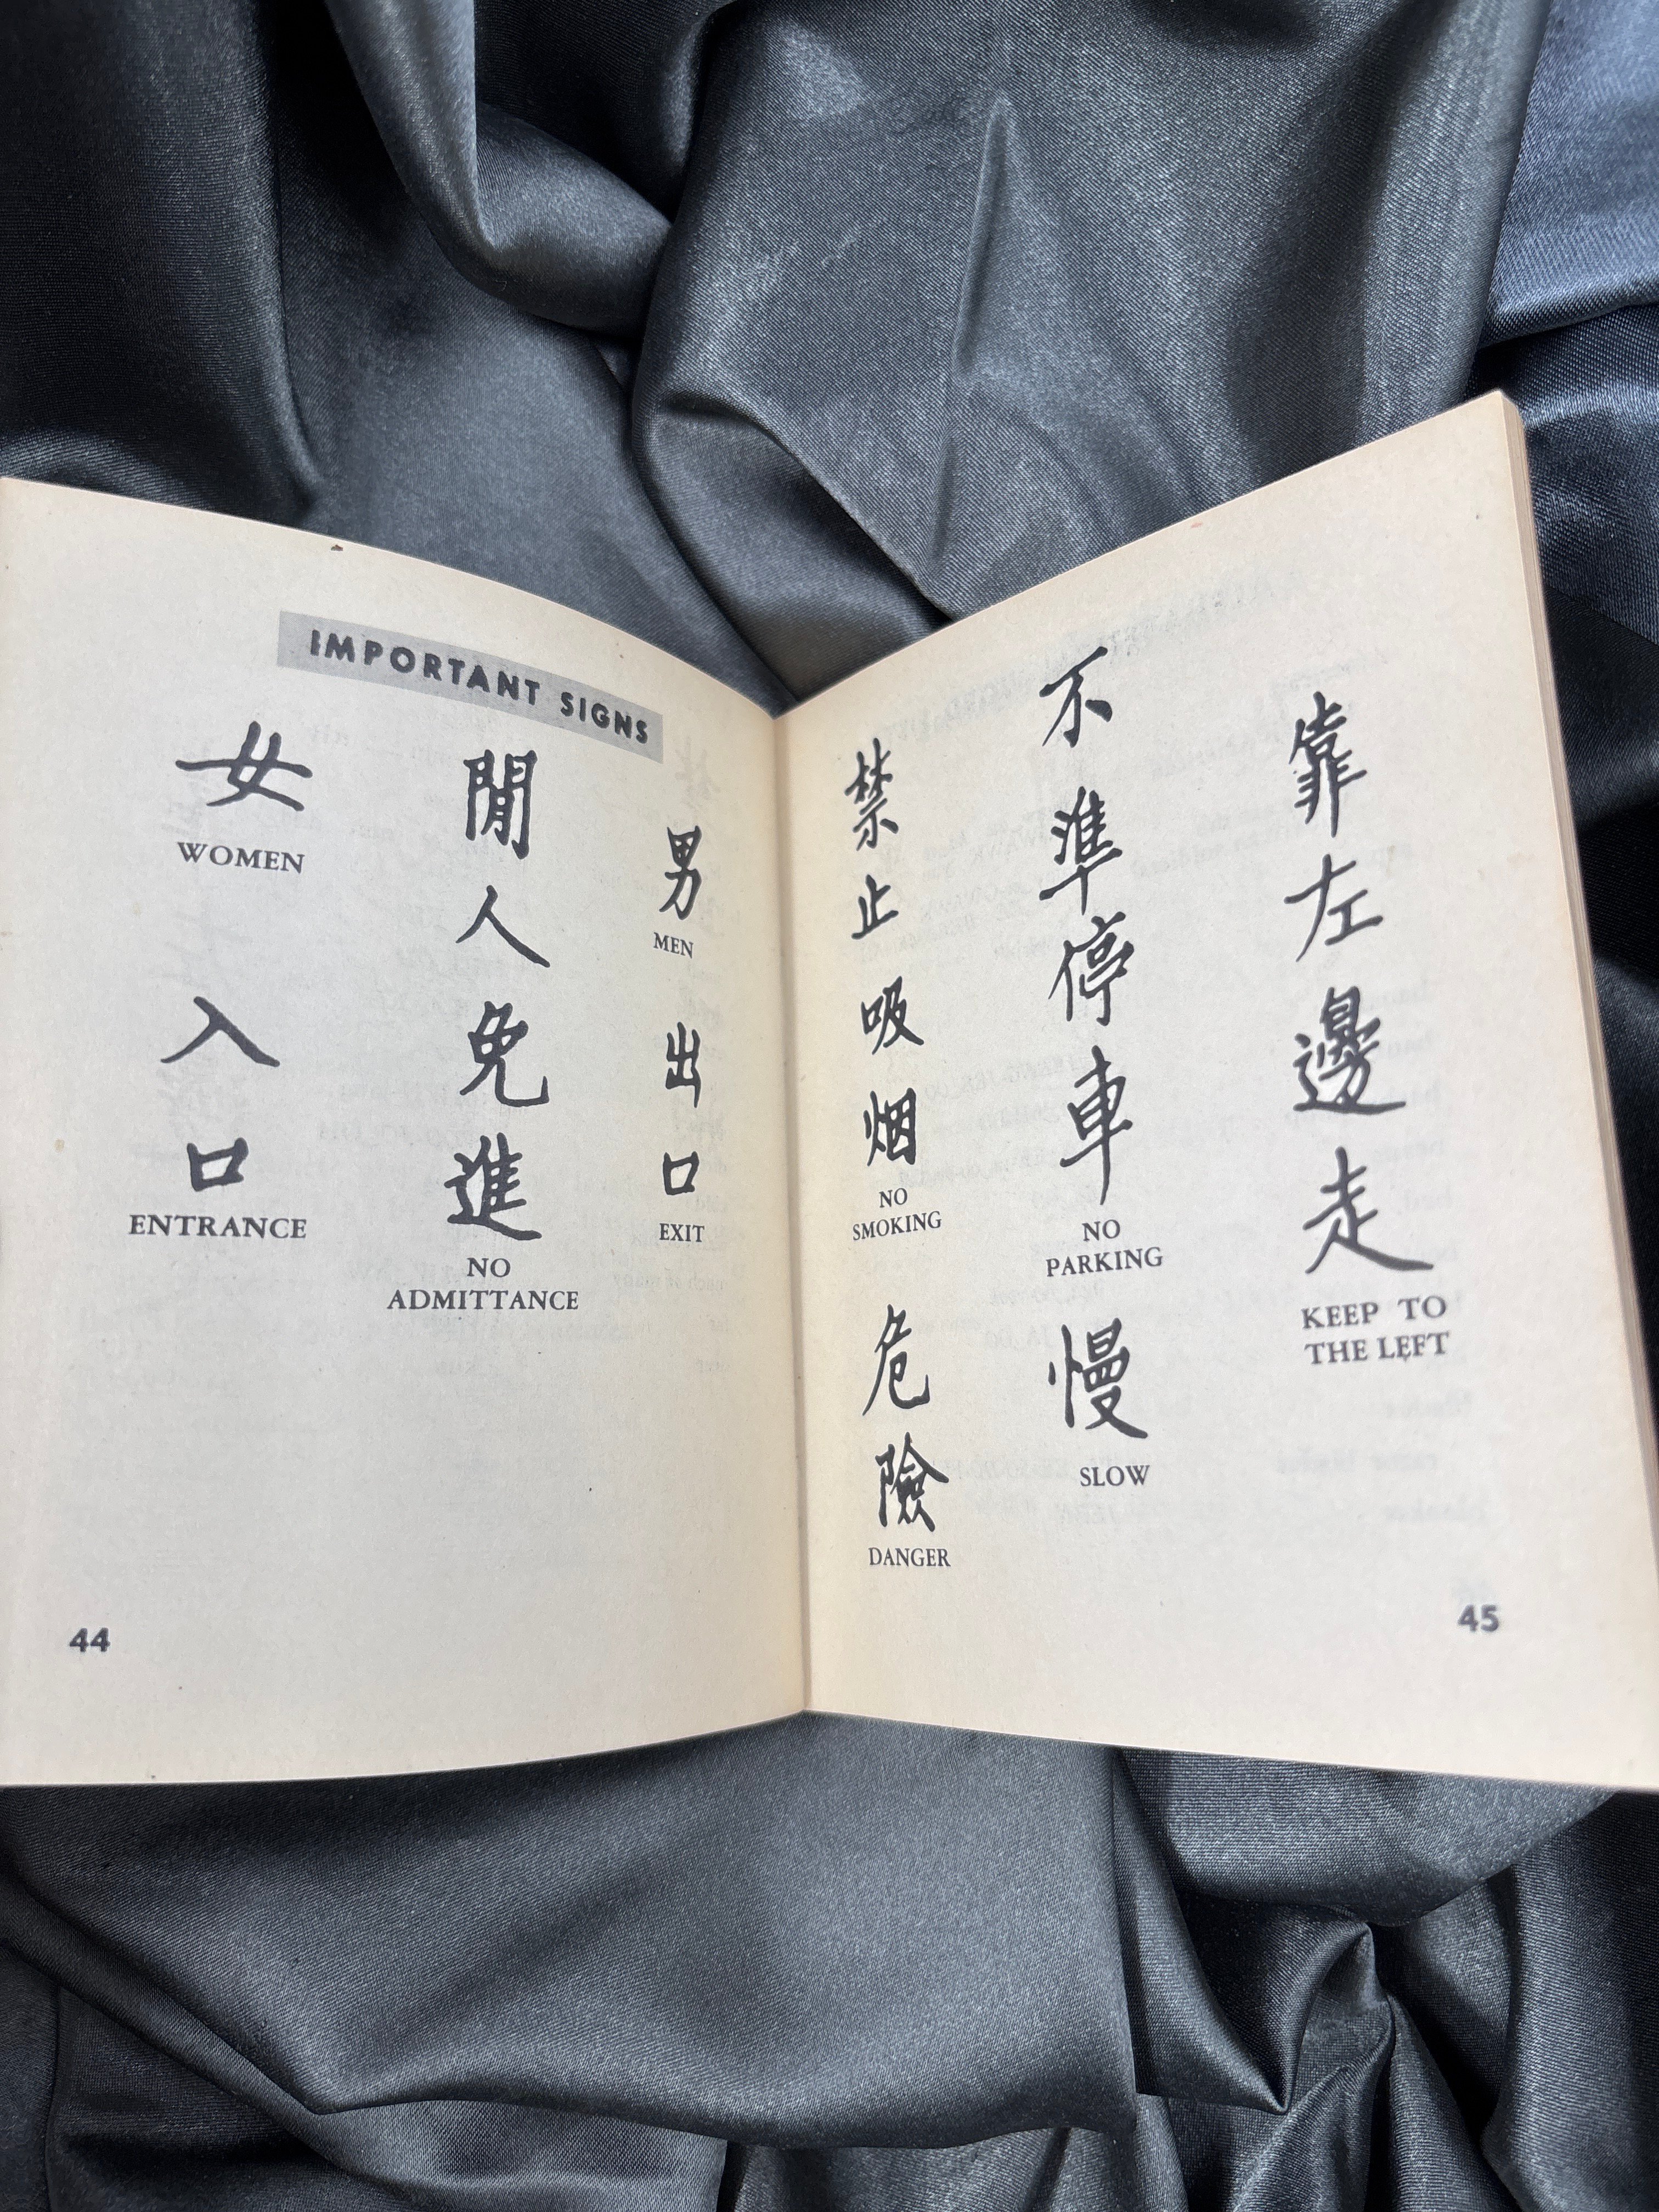 IMPORTANT SIGNS
女
WOMEN
入口
ENTRANCE
閒人免進
NO
ADMITTANCE
男
MEN
出口
EXIT
44
禁止吸烟
NO
SMOKING
危險
DANGER
不準停車
NO
PARKING
慢
SLOW
靠左邊走
KEEP TO
THE LEFT
45